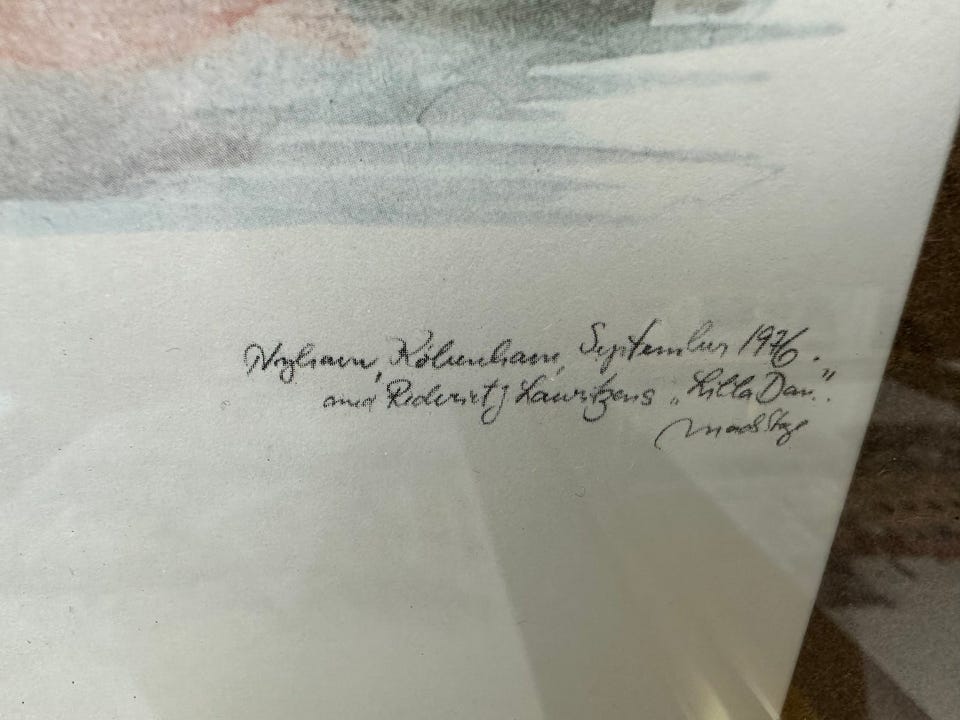 Nyhavn, København, September 1976.
med Rederiet J Lauritzens „Lilla Dan”.
Mads Stage